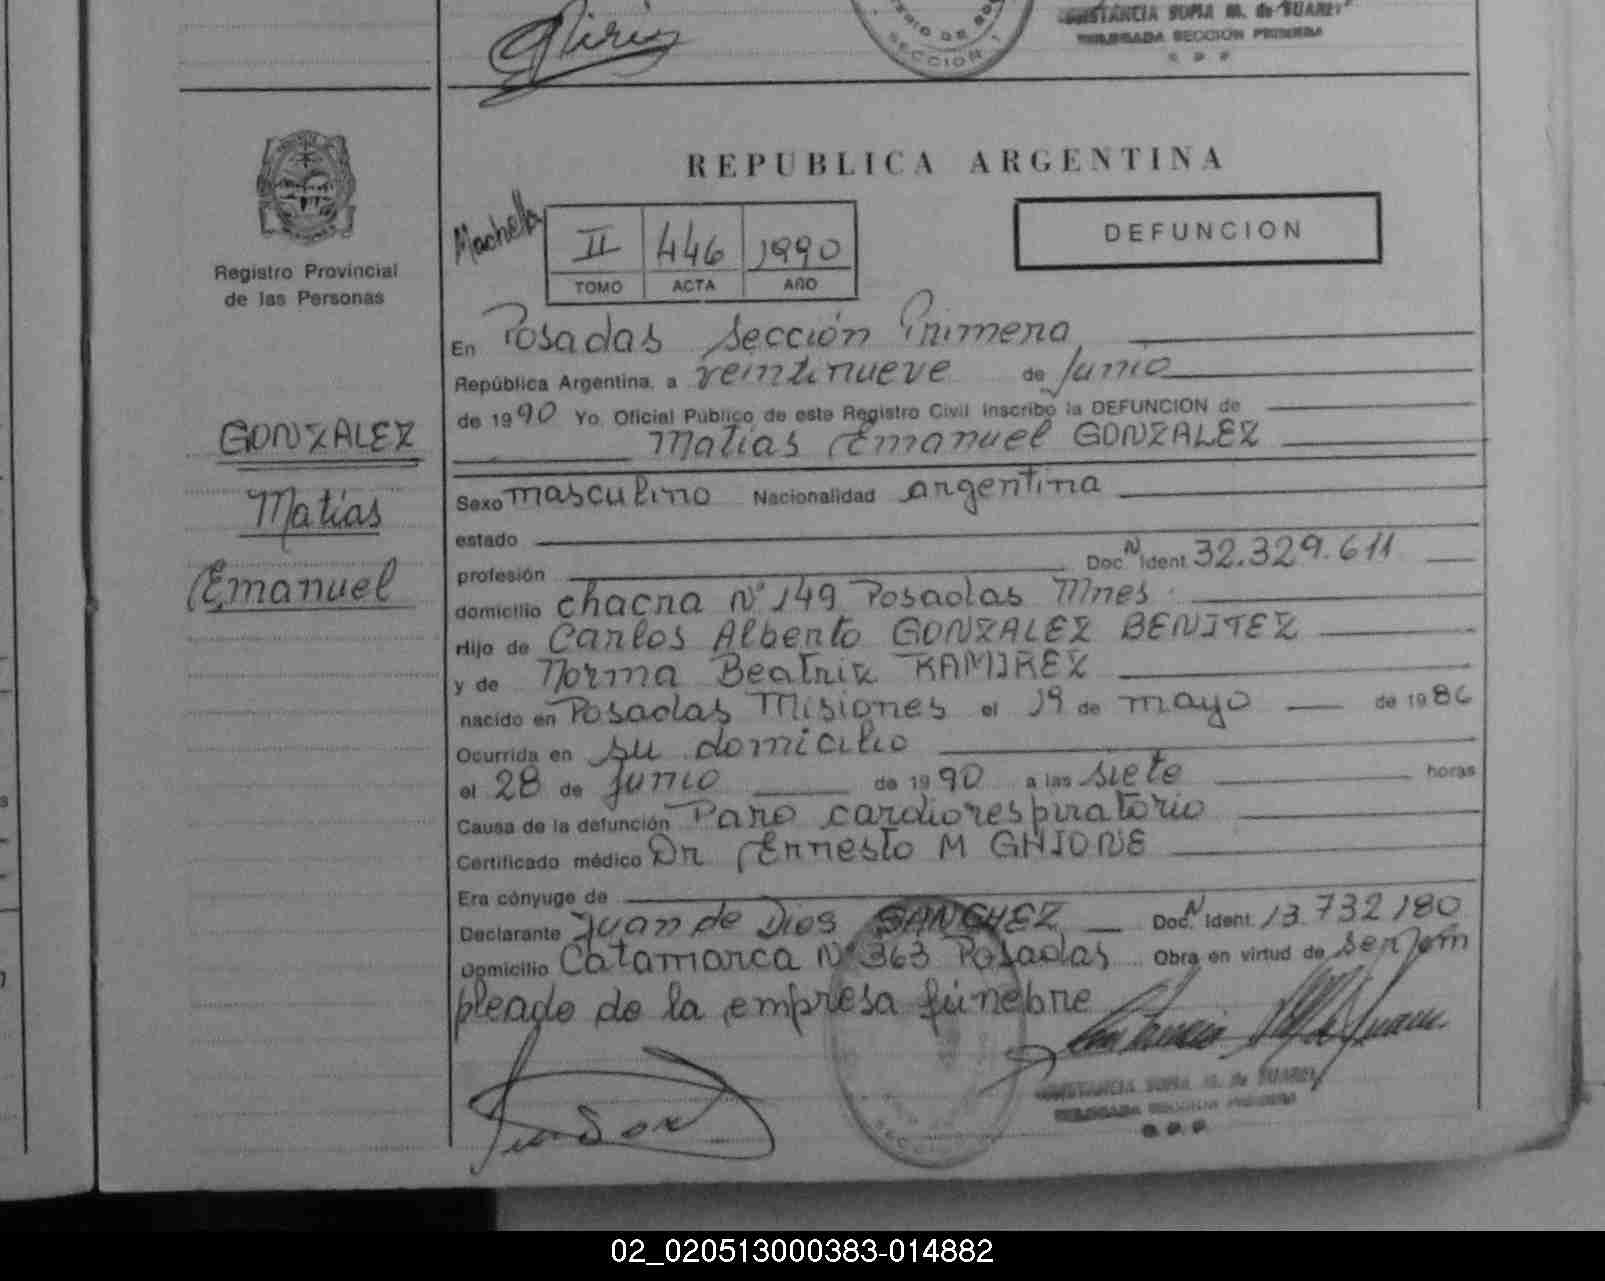 CONSTANCIA SOFIA M. de SUAREZ
DELEGADA SECCION PRIMERA
R. P. P.
SECCION 1
REPUBLICA ARGENTINA
Registro Provincial
de las Personas
II 446 1990
TOMO ACTA AÑO
DEFUNCION
GONZALEZ
Matías
Emanuel
En Posadas Sección Primera
República Argentina, a veintinueve de Junio
de 1990 Yo, Oficial Público de este Registro Civil inscribo la DEFUNCION de
Matias Emanuel GONZALEZ
Sexo masculino Nacionalidad argentina
estado
profesión Doc. N Ident. 32.329.611
domicilio chacra Nº 149 Posadas Mnes.
Hijo de Carlos Alberto GONZALEZ BENITEZ
y de Norma Beatriz RAMIREZ
nacido en Posadas Misiones el 19 de mayo de 1986
Ocurrida en su domicilio
el 28 de junio de 1990 a las siete horas
Causa de la defunción Paro cardiorespiratorio
Certificado médico Dr Ernesto M GHIONE
Era cónyuge de
Declarante Juan de Dios SANCHEZ Doc. N Ident. 13.732.180
Domicilio Catamarca Nº 363 Posadas Obra en virtud de ser em
pleado de la empresa fúnebre
CONSTANCIA SOFIA M. de SUAREZ
DELEGADA SECCION PRIMERA
R. P. P.
02_020513000383-014882